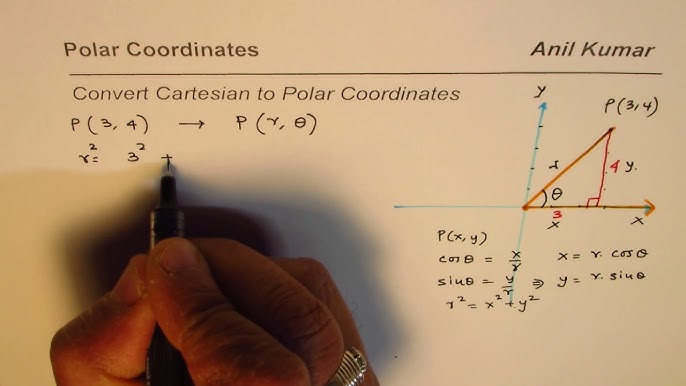 Polar Coordinates Anil Kumar
Convert Cartesian to Polar Coordinates
P(3, 4) → P(r, θ)
r² = 3² +
y
P(3, 4)
r
4 y
θ
3
x x
P(x, y)
cosθ = x/r x = r. cosθ
sinθ = y/r ⇒ y = r. sinθ
r² = x² + y²